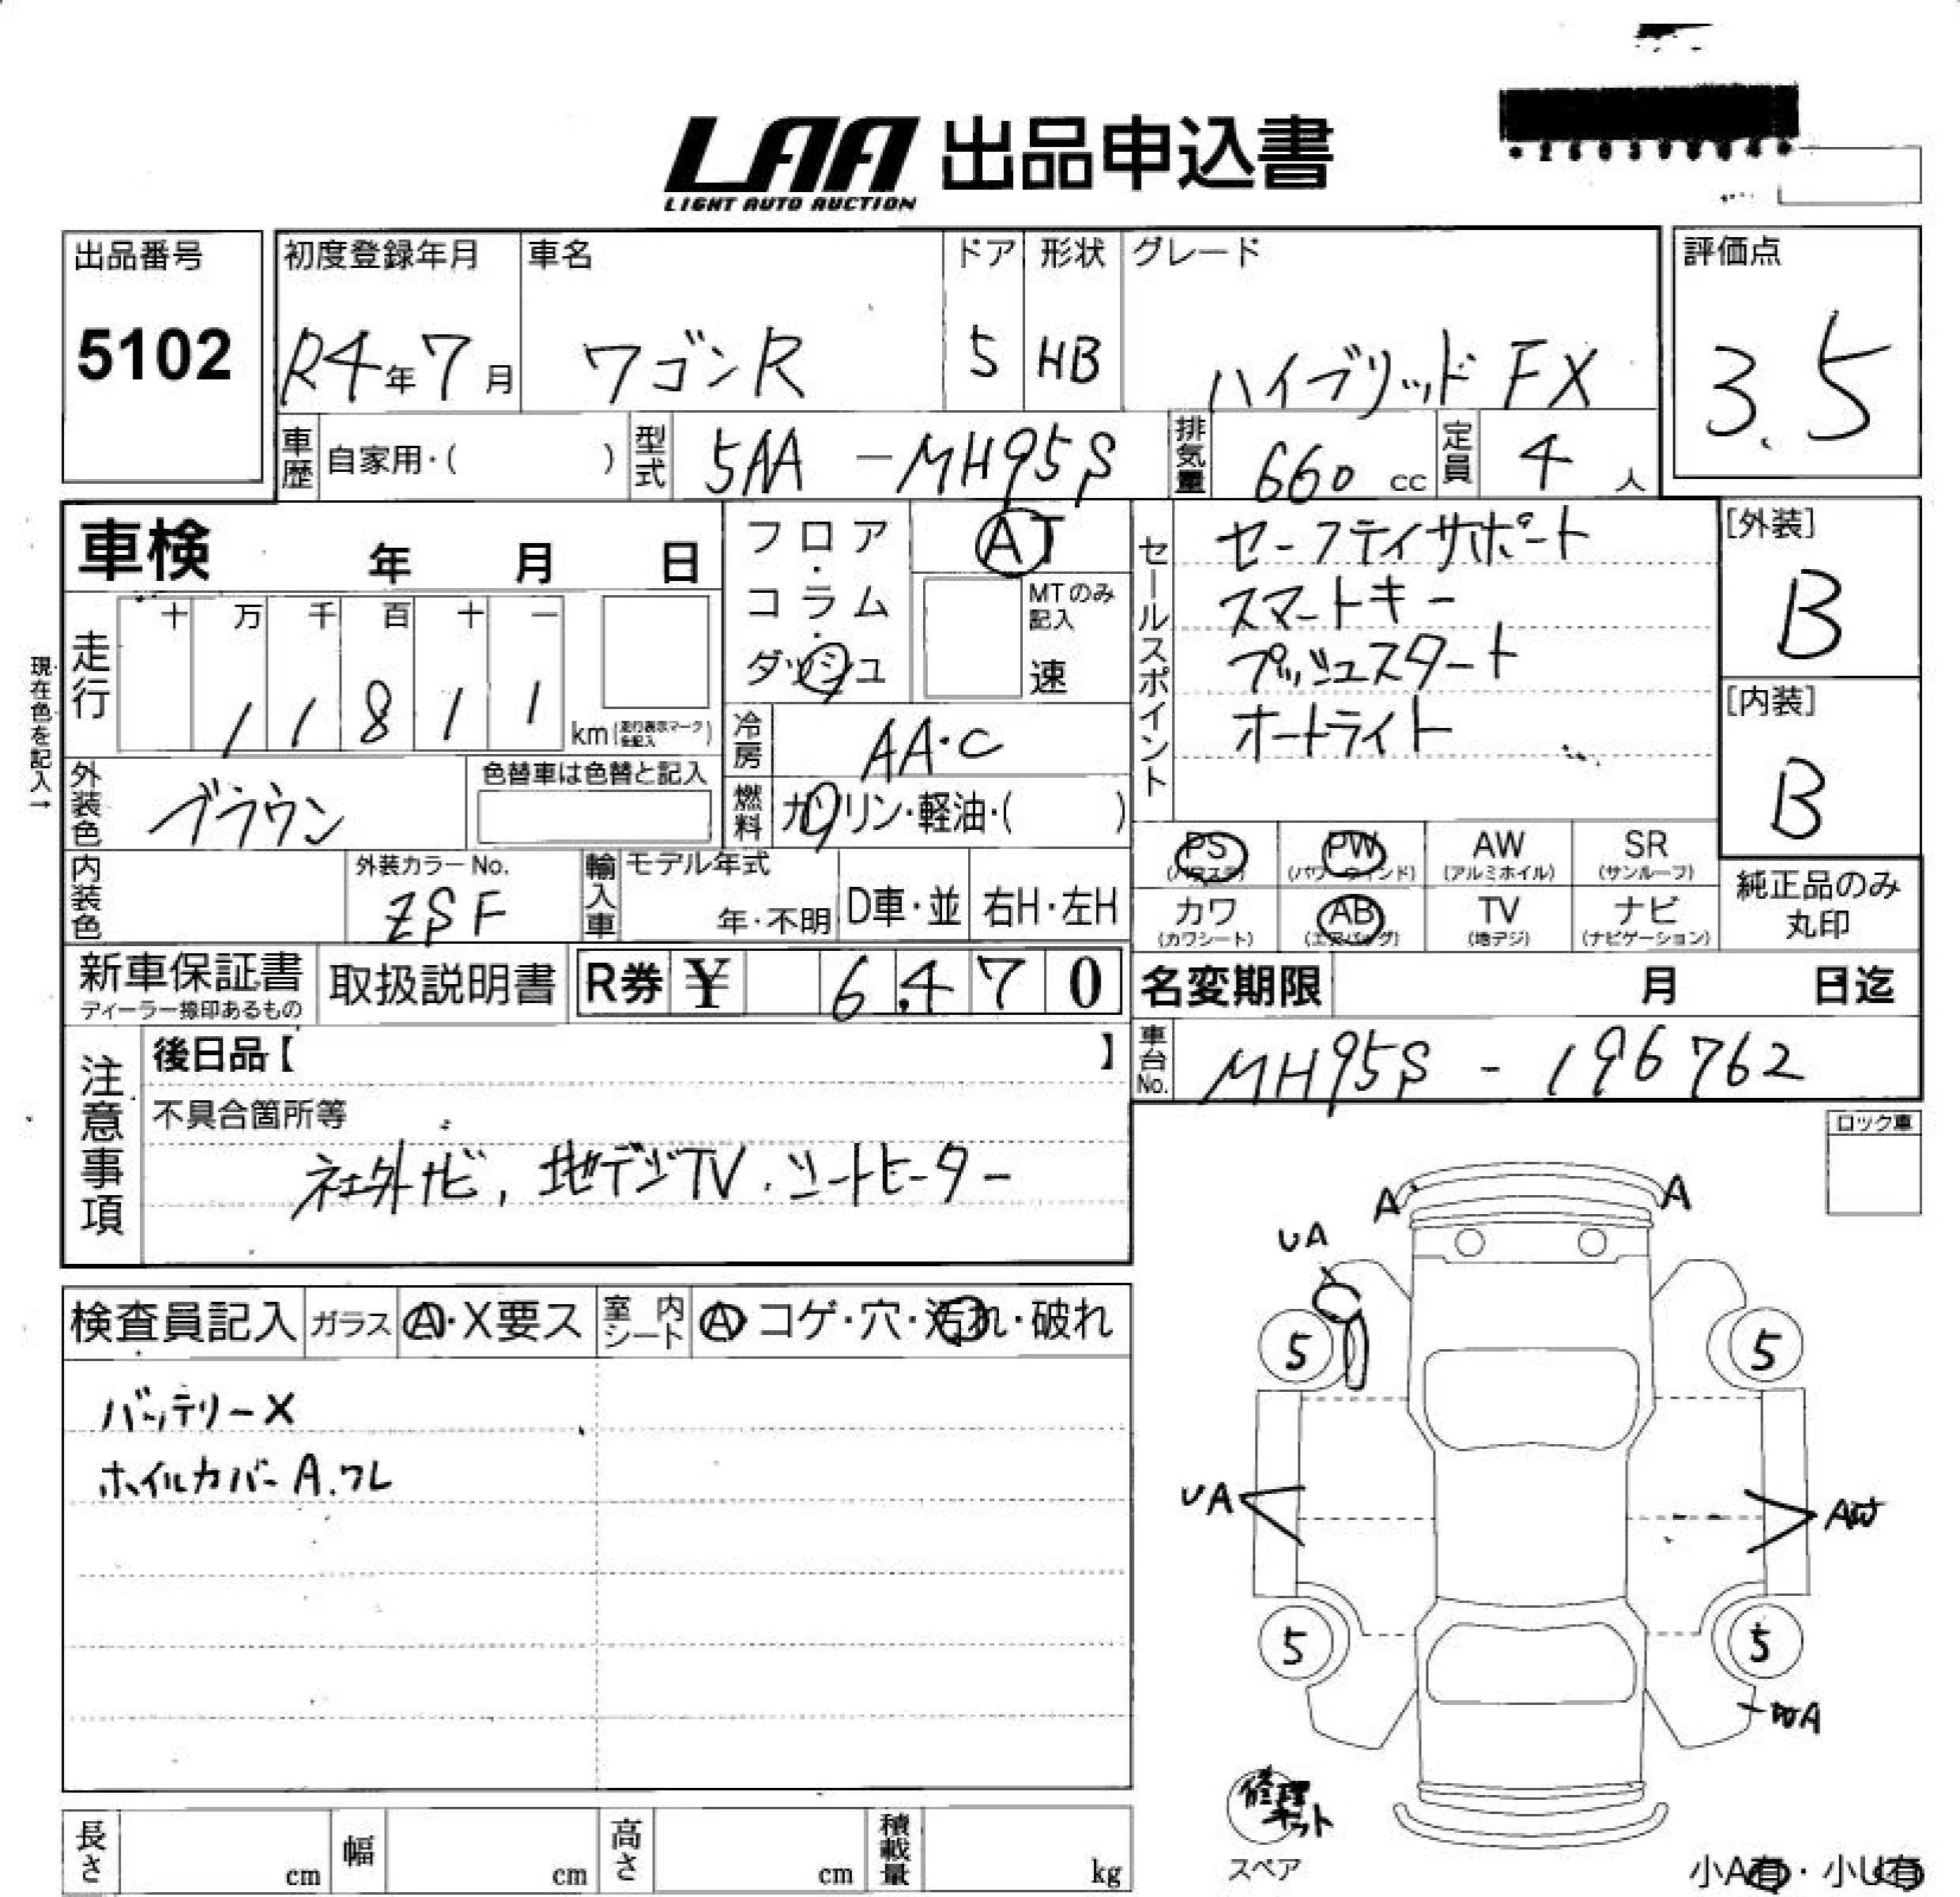 LAA 出品申込書
LIGHT AUTO AUCTION
出品番号
5102
初度登録年月
R4年7月
車名
ワゴンR
ドア
5
形状
HB
グレード
ハイブリッド FX
評価点
3.5
車歴
自家用・( )
型式
5AA -MH95S
排気量
660 cc
定員
4 人
車検 年 月 日
フロア・コラム・ダッシュ
AT
MTのみ記入
速
セールスポイント
セーフティサポート
スマートキー
プッシュスタート
オートライト
[外装]
B
[内装]
B
現在色を記入→
走行
十 万 千 百 十 一
1 1 8 1 1
km(走行表示マークを記入)
冷房
AA・C
燃料
ガソリン・軽油・( )
外装色
ブラウン
色替車は色替と記入
内装色
外装カラーNo.
ZSF
輸入車
モデル年式
年・不明
D車・並
右H・左H
PS
(パワステ)
PW
(パワーウインド)
AW
(アルミホイル)
SR
(サンルーフ)
カワ
(カワシート)
AB
(エアバッグ)
TV
(地デジ)
ナビ
(ナビゲーション)
純正品のみ
丸印
新車保証書
ディーラー捺印あるもの
取扱説明書
R券 ¥ 6,470
名変期限 月 日迄
車台No.
MH95S - 196762
注意事項
後日品【 】
不具合箇所等
社外ナビ, 地デジTV.シートヒーター
ロック車
検査員記入
ガラス
A・X要ス
室内シート
A コゲ・穴・汚れ・破れ
バッテリーX
ホイルカバーA.ワレ
A
A
UA
5
5
UA
5
5
修理キット
スペア
長さ cm
幅 cm
高さ cm
積載量 kg
小A有・小U有